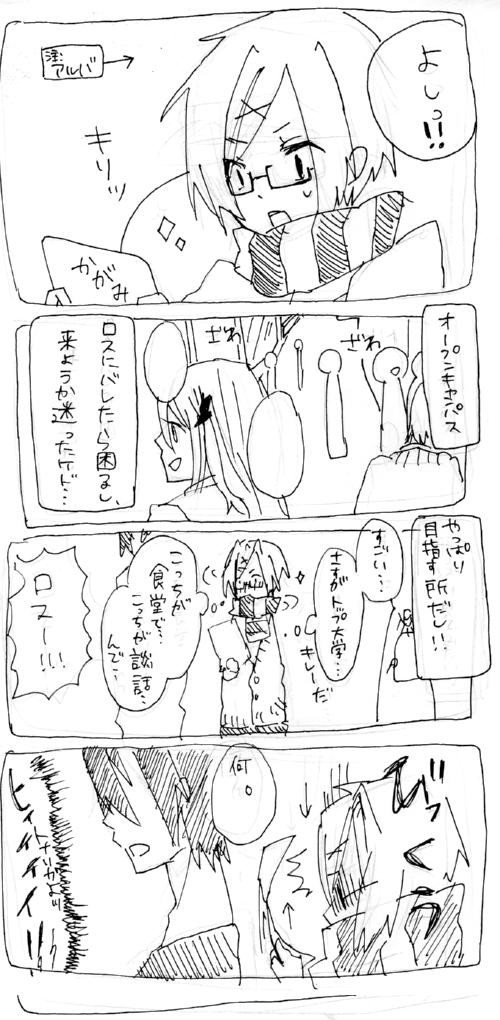 よしっ!!
注:
アルバ
キリッ
かがみ
オープンキャンパス
ざわ
ざわ
ロスにバレたら困るし、
来ようか迷ったケド…
やっぱり
目指す所だし…
すごい…
さすがトップ大学…
キレーだ
こっちが
食堂で…
こっちが談話…
んで…
ロスー!!!
びっ
何。
ヒィイイイイ!!